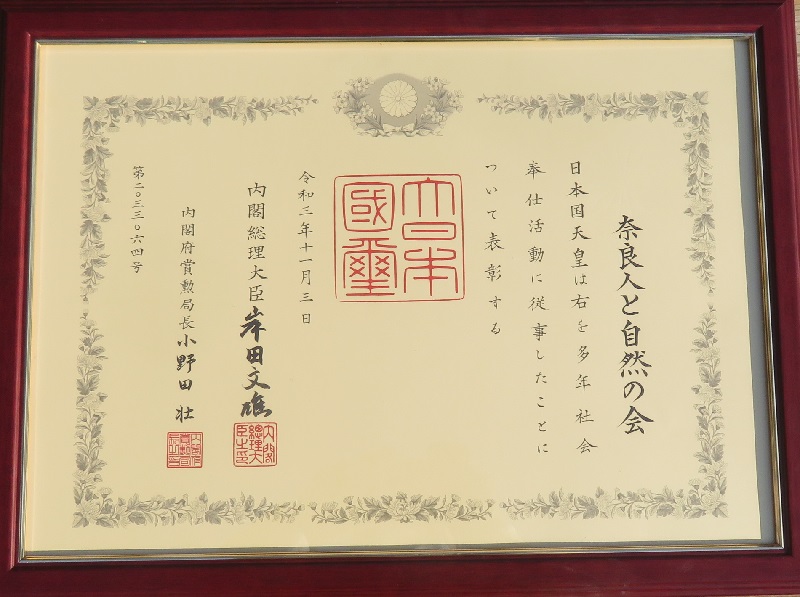 奈良人と自然の会
日本国天皇は右を多年社会
奉仕活動に従事したことに
ついて表彰する
大日本
國璽
令和三年十一月三日
内閣総理大臣 岸田文雄
内閣総理大臣之印
内閣府賞勲局長 小野田 壮
第二〇三三〇六四号